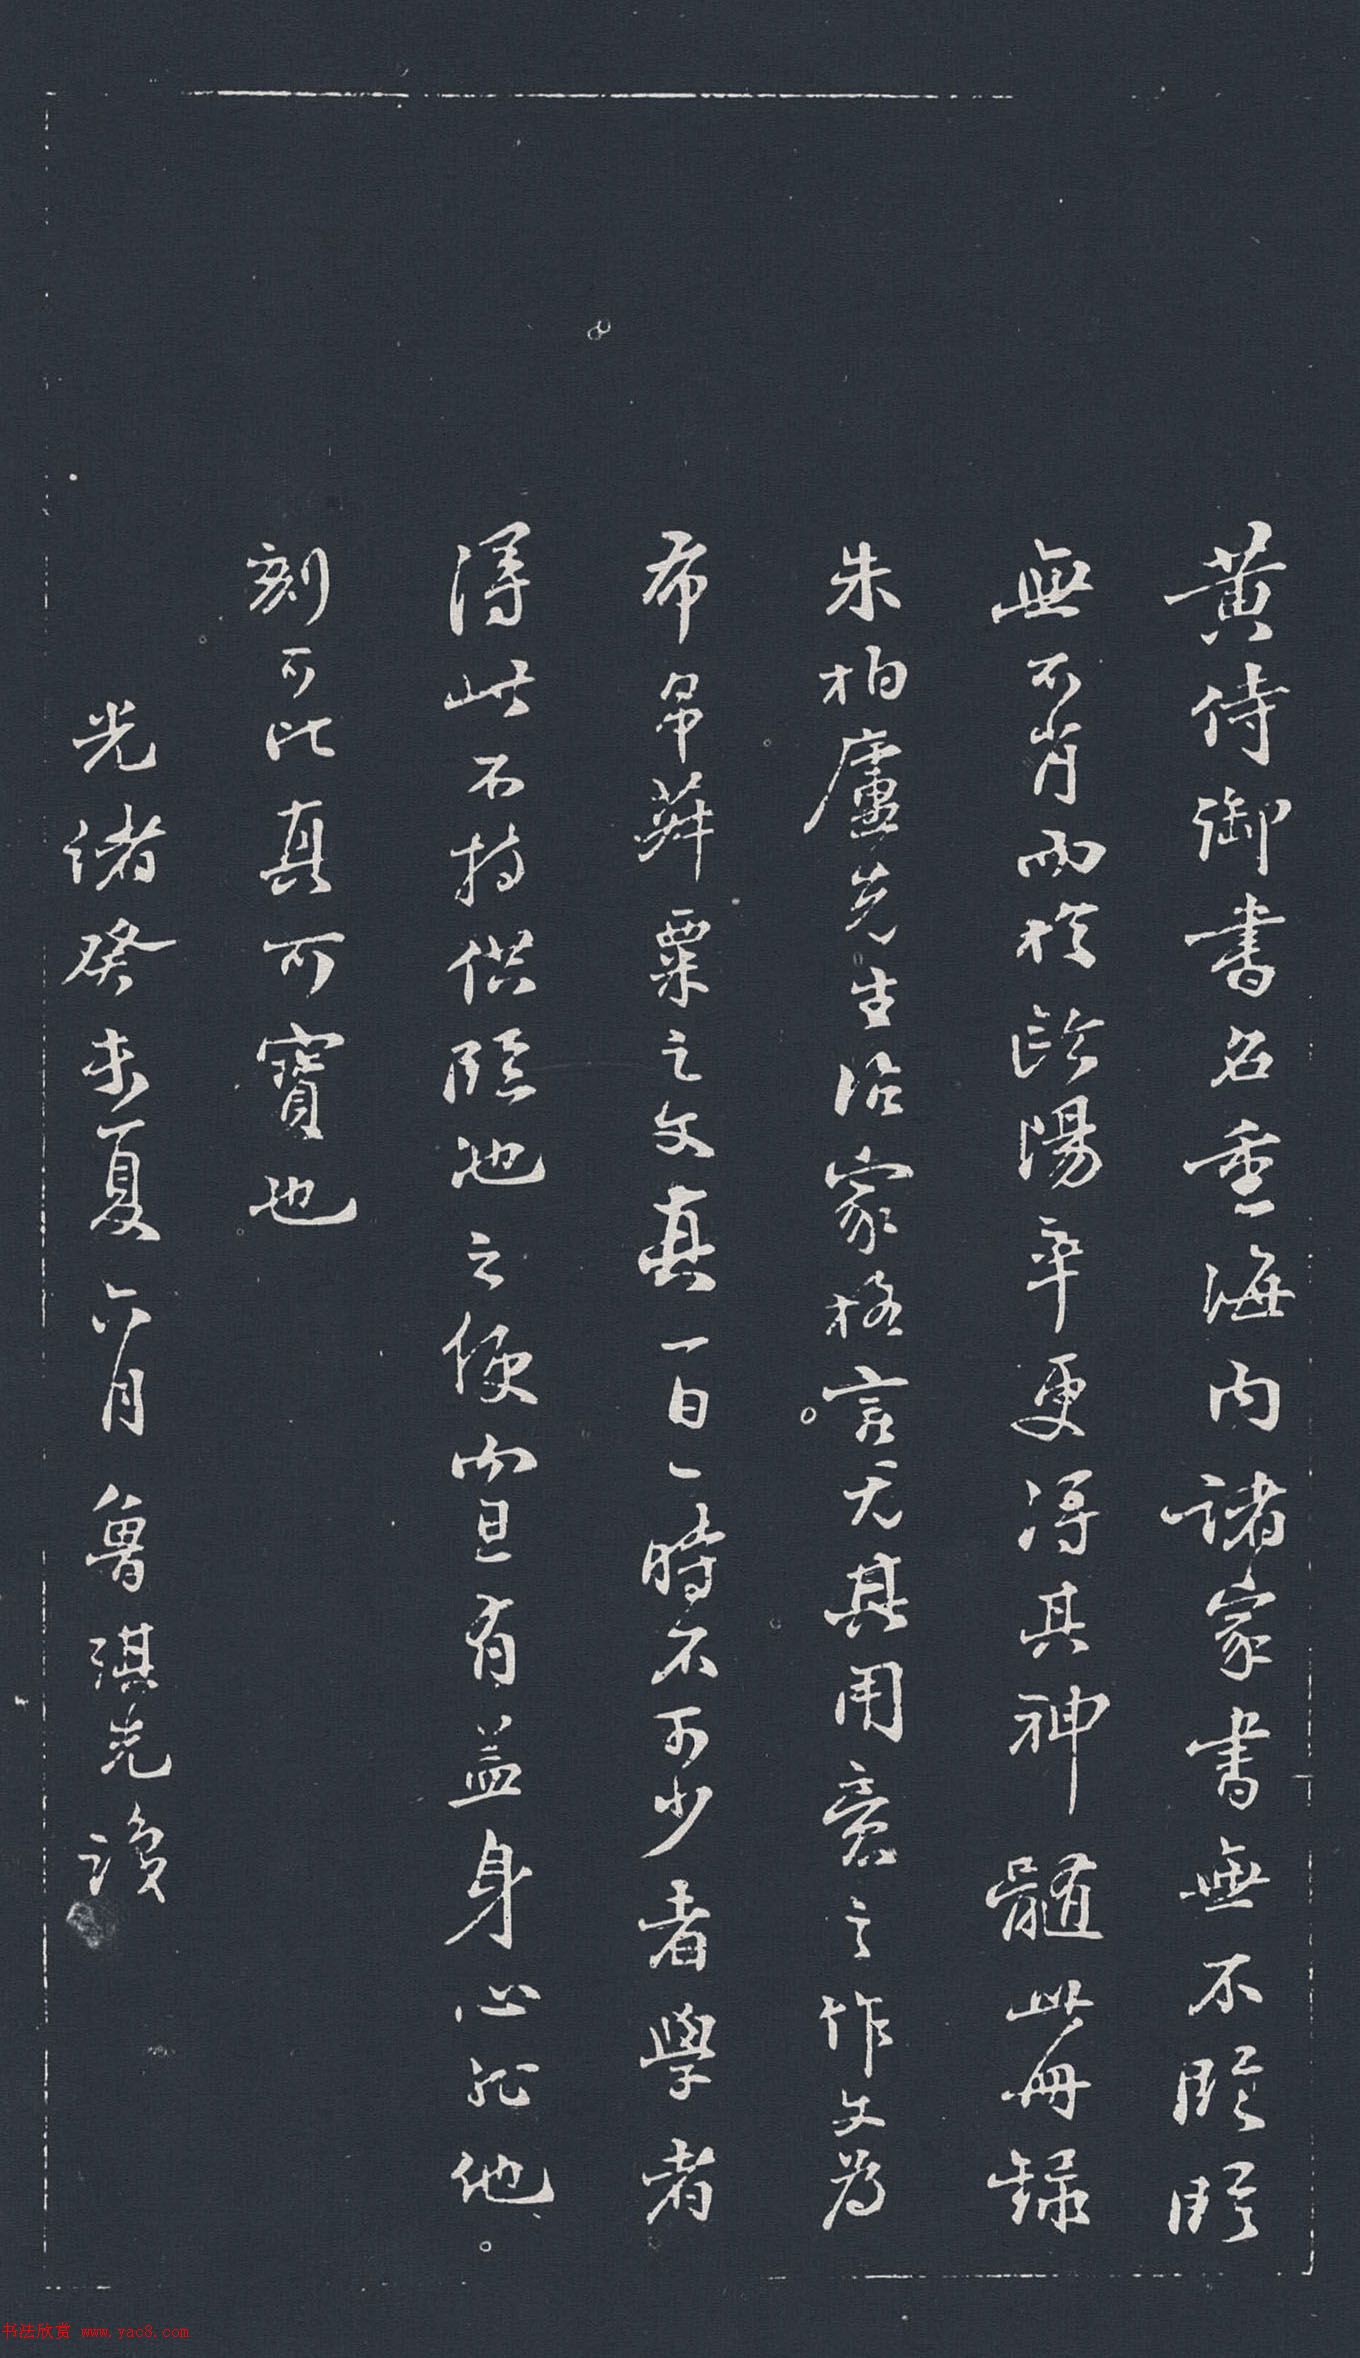 黄侍御書名重海内諸家書無不臨臨
無不肖而於歐陽率更得其神髓此冊録
朱柏廬先生治家格言尤其用意之作文為
布帛菽粟之文真一日一時不可少者學者
得此不特供臨池之便而且有益身心非他
刻可比真可寶也
光緒癸未夏六月魯琪光識
书法欣赏 www.yac8.com